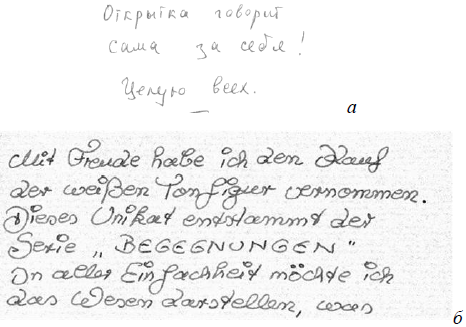 Открытка говорит
сама за себя!
Целую всех.
а
Mit Freude habe ich den Kauf
der weißen Tonfigur vernommen.
Dieses Unikat entstammt der
Serie „BEGEGNUNGEN"
In aller Einfachheit möchte ich
das Wesen darstellen, was
б